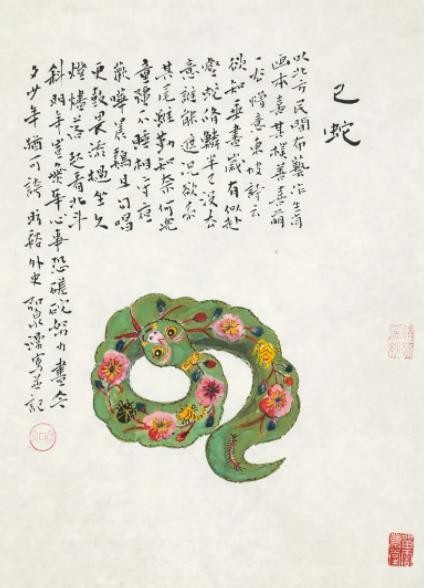 巳蛇
以北方民間布藝作生肖
画本喜其樸善喜萌
意東坡詩云
欲知垂盡歲有似赴
壑蛇脩鱗半已没去
意誰能遮況欲系
其尾雖勤知奈何兒
童強不睡相守夜
歡嘩晨鷄且勿唱
更鼓畏添撾坐久
燈燼落起看北斗
斜明年豈無年心事恐磋砣努力盡今
夕少年猶可誇 外史 並記